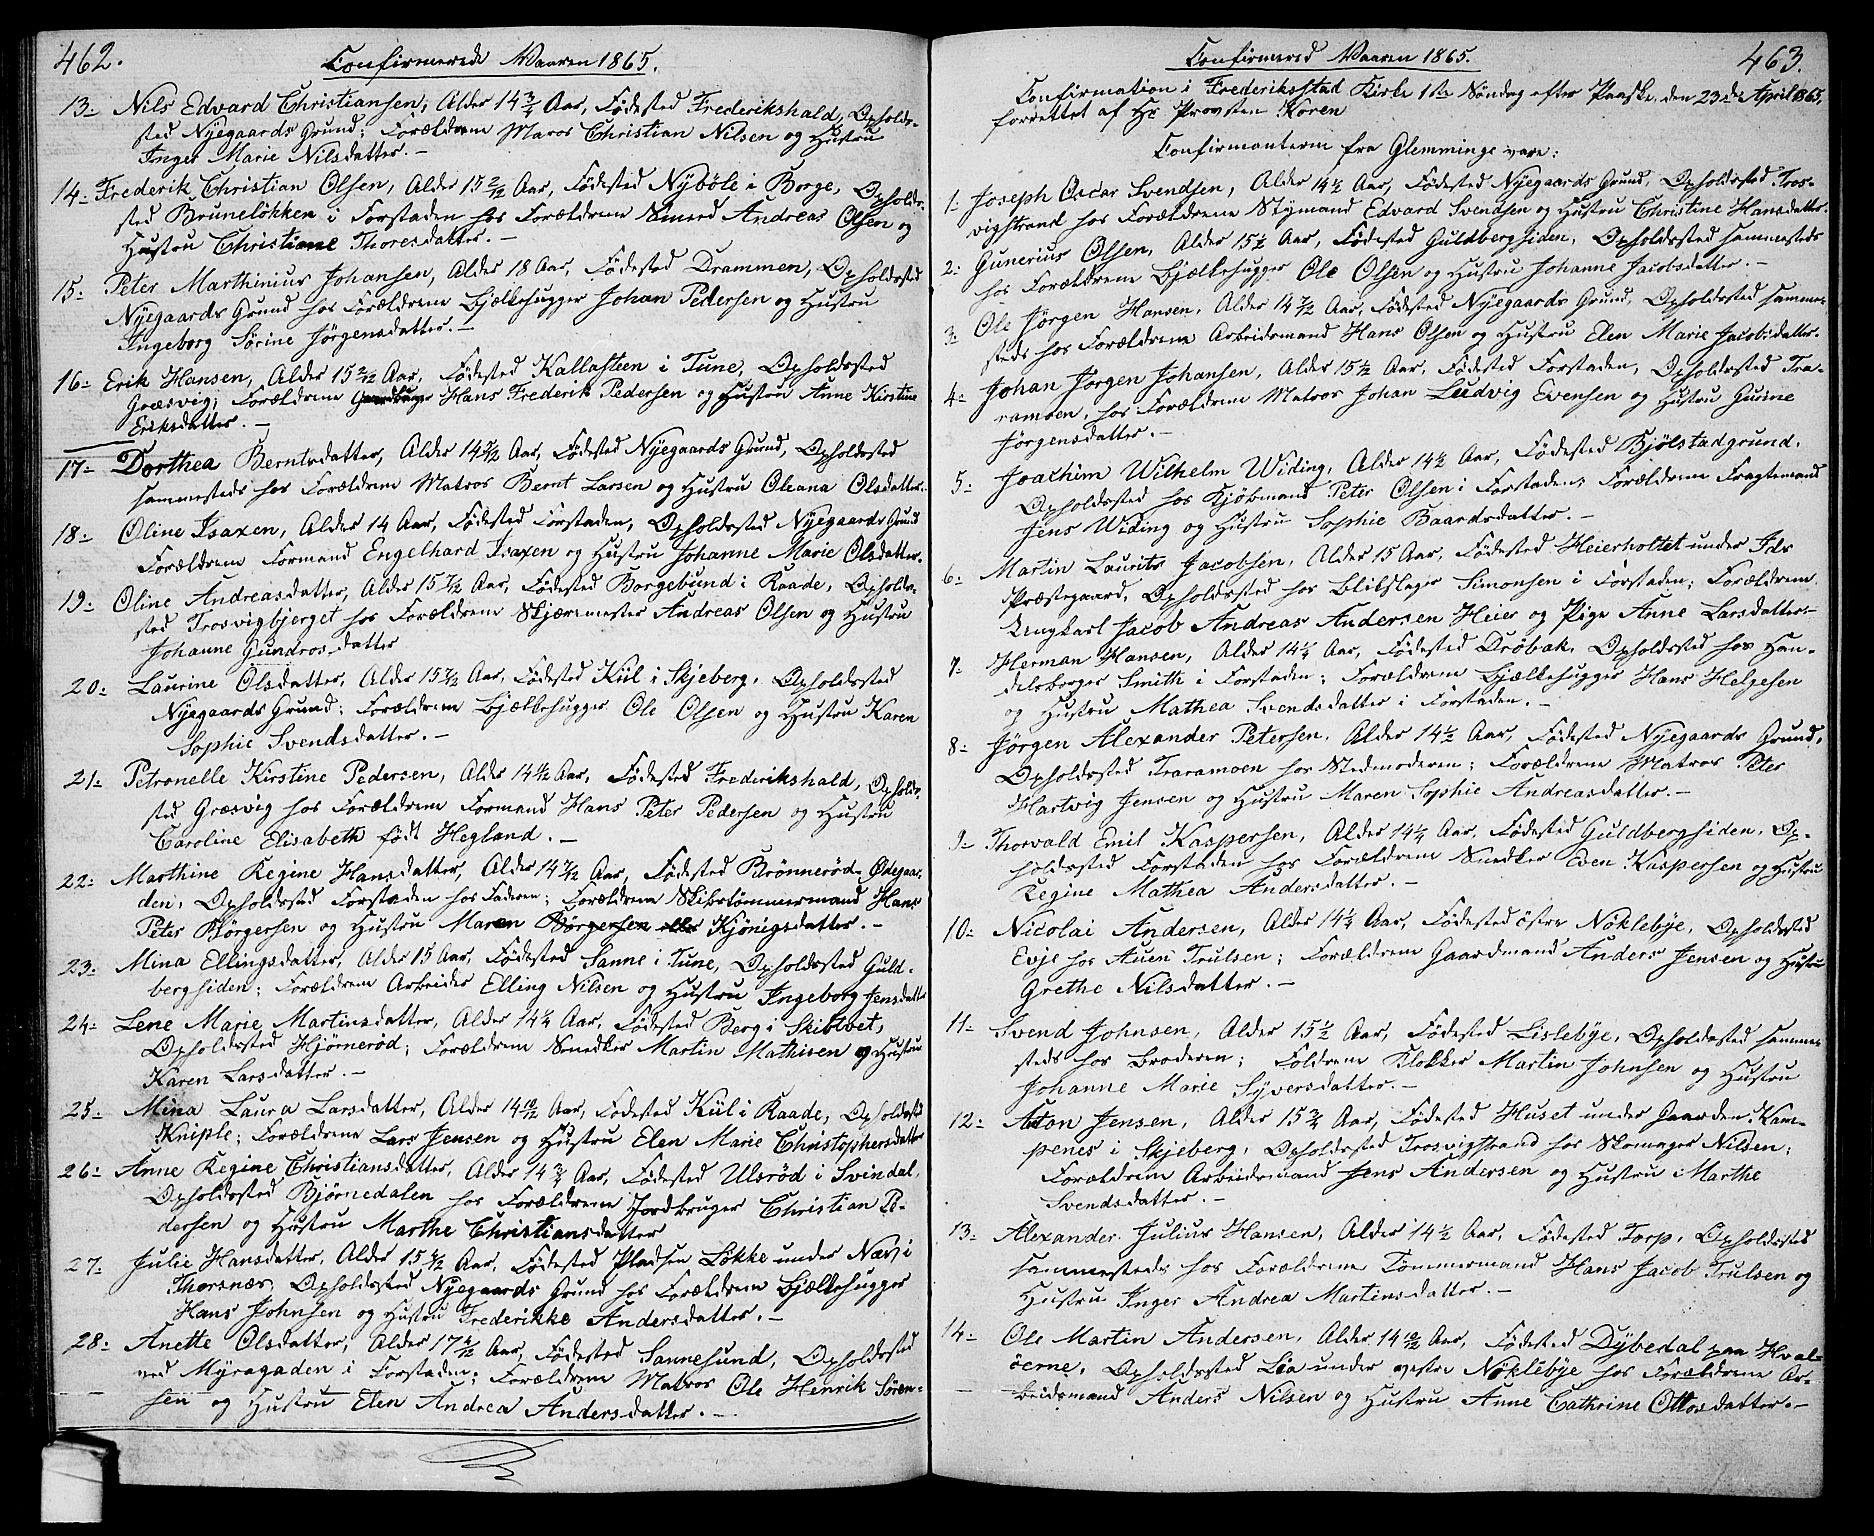 462.
Confirmerede Vaaren 1865.
13. Nils Edvard Christiansen, Alder 14 3/4 Aar, Fødested Frederikshald, Opholds-
sted Nyegaards Grund; Forældrene Matros Christian Nilsen og Hustru
Inger Marie Nilsdatter. -
14. Frederik Christian Olsen, Alder 15 2/12 Aar, Fødested Nybøle i Borge, Opholds-
sted Bruneløkken i Forstaden hos Forældrene Smed Andreas Olsen og
Hustru Christiane Thoresdatter. -
15. Peter Marthinius Johansen, Alder 18 Aar, Fødested Drammen, Opholdssted
Nyegaards Grund hos Forældrene Bjælkehugger Johan Pedersen og Hustru
Ingeborg Sørine Jørgensdatter. -
16. Erik Hansen, Alder 15 2/12 Aar, Fødested Kallasteen i Tune, Opholdssted
Græsvig; Forældrene Hans Frederik Pedersen og Hustru Anne Kirstine
Eriksdatter. -
17. Dorthea Berntsdatter, Alder Aar, Fødested Nyegaards Grund, Opholdssted
sammesteds hos Forældrene Matros Bernt Larsen og Hustru Oleana Olsdatter.
18. Oline Isaxen, Alder 14 Aar, Fødested Forstaden, Opholdssted Nyegaards Grund
Forældrene Formand Engelhard Isaxen og Hustru Johanne Marie Olsdatter.
19. Oline Andreasdatter, Alder Aar, Fødested Borgebund i Raade, Opholds-
sted Trosvigbjerget hos Forældrene Skjæremester Andreas Olsen og Hustru
Johanne Gundrosdatter
20. Laurine Olsdatter, Alder Aar, Fødested Kiil i Skjeberg, Opholdssted
Nyegaards Grund; Forældrene Bjælkehugger Ole Olsen og Hustru Karen
Sophie Svendsdatter. -
21. Petronelle Kirstine Pedersen, Alder 14 1/2 Aar, Fødested Frederikshald, Opholds-
sted Græsvig hos Forældrene Formand Hans Peter Pedersen og Hustru
Caroline Elisabeth født Hegland. -
22. Marthine Regine Hansdatter, Alder 14 7/12 Aar, Fødested Brønnerød-Ødegaar-
den, Opholdssted Forstaden hos Faderen; Forældrene Skibstømmermand Hans
Peter Børgersen og Hustru Maren Børgersen eller Kjønigsdatter. -
23. Mina Ellingsdatter, Alder 15 Aar, Fødested Sanne i Tune, Opholdssted Guld-
bergsiden; Forældrene Arbeider Elling Nilsen og Hustru Ingeborg Jensdatter
24. Lene Marie Martinsdatter, Alder 14 1/4 Aar, Fødested Berg i Skibtvet,
Opholdssted Hjørnerød; Forældrene Snedker Martin Mathisen og Hustru
Karen Larsdatter. -
25. Mina Laura Larsdatter, Alder 14 10/12 Aar, Fødested Kiil i Raade, Opholdssted
Kniple; Forældrene Lars Jensen og Hustru Elen Marie Christophersdatter
26. Anne Regine Christiansdatter, Alder 14 3/4 Aar, Fødested Ulsrød i Svindal,
Opholdssted Bjørnedalen hos Forældrene Jordbruger Christian Pe-
dersen og Hustru Marthe Christiansdatter
27. Julie Hansdatter, Alder Aar, Fødested Pladsen Løkke under Næs i
Thorsnæs, Opholdssted Nyegaards Grund hos Forældrene Bjælkehugger
Hans Johnsen og Hustru Frederikke Andersdatter. -
28. Anette Olsdatter, Alder Aar, Fødested Sannesund, Opholdssted
ved Myragaden i Forstaden; Forældrene Matros Ole Henrik Søren-
sen og Hustru Elen Andrea Andersdatter. -
463.
Confirmered Vaaren 1865.
Confirmation i Frederiksstad Kirke 1ste Søndag efter Paaske, den 23de April 1865,
forrettet af Hr Provsten Koren
Confirmanterne fra Glemminge vare:
1. Joseph Oscar Svendsen, Alder 14 1/2 Aar, Fødested Nyegaards Grund, Opholdssted Tros-
vigstrand hos Forældrene Stymand Edvard Svendsen og Hustru Christine Hansdatter.
2. Gunerius Olsen, Alder 15 1/2 Aar, Fødested Guldbergsiden, Opholdssted sammesteds
hos Forældrene Bjælkehugger Ole Olsen og Hustru Johanne Jacobsdatter. -
3. Ole Jørgen Hansen, Alder 14 7/12 Aar, Fødested Nyegaards Grund, Opholdssted samme-
steds hos Forældrene Arbeidsmand Hans Olsen og Hustru Elen Marie Jacobsdatter.
4. Johan Jørgen Johansen, Alder 15 1/2 Aar, Fødested Forstaden, Opholdssted Tra-
ramoen, hos Forældrene Matros Johan Ludvig Evensen og Hustru Gurine
Jørgensdatter. -
5. Joachim Wilhelm Widing, Alder 14 1/2 Aar, Fødested Bjølstadgrund,
Opholdssted hos Kjøbmand Peter Olsen i Forstaden; Forældrene Fragtemand
Jens Widing og Hustru Sophie Baardsdatter. -
6. Martin Laurits Jacobsen, Alder 15 Aar, Fødested Heierholtet under Ids
Præstegaard, Opholdssted hos Blikslager Simonsen i Forstaden; Forældrene
Ungkarl Jacob Andreas Andersen Heier og Pige Anne Larsdatter. -
7. Herman Hansen, Alder 14 1/4 Aar, Fødested Drøbak, Opholdssted hos Han-
delsborger Smith i Forstaden; Forældrene Bjælkehugger Hans Helgesen
og Hustru Mathea Svendsdatter i Forstaden. -
8. Jørgen Alexander Petersen, Alder 14 1/2 Aar, Fødested Nyegaards Grund,
Opholdssted Traramoen hos Stedmoderen; Forældrene Matros Peter
Hartvig Jensen og Hustru Maren Sophie Andreasdatter. -
9. Thorvald Emil Kaspersen, Alder 14 1/4 Aar, Fødested Guldbergsiden, Op-
holdssted Forstaden hos Forældrene Snedker Eden Kaspersen og Hustru
Regine Mathea Andersdatter. -
10. Nicolai Andersen, Alder 14 1/4 Aar, Fødested østre Nøklebye, Opholdssted
Evje hos Auen Trulsen; Forældrene Gaardmand Anders Jensen og Hustru
Grethe Nilsdatter. -
11. Svend Johnsen, Alder 15 1/2 Aar, Fødested Lislebye, Opholdssted samme-
steds hos Broderen; Foldrene Klokker Martin Johnsen og Hustru
Johanne Marie Syversdatter. -
12. Aton Jensen, Alder 15 3/4 Aar, Fødested Huset under Gaarden Kam-
penes i Skjeberg, Opholdssted Trosvigstrand hos Skomager Nilsen;
Forældrene Arbeidsmand Jens Andersen og Hustru Marthe
Svendsdatter. -
13. Alexander Julius Hansen, Alder 14 1/2 Aar, Fødested Torp, Opholdssted
sammesteds hos Forældrene Tømmermand Hans Jacob Trulsen og
Hustru Inger Andrea Martinsdatter. -
14. Ole Martin Andersen, Alder 14 10/12 Aar, Fødested Dybedal paa Hval-
øerne, Opholdssted Lia under vestre Nøklebye hos Forældrene Ar-
beidsmand Anders Nilsen og Hustru Anne Cathrine Ottosdatter. -